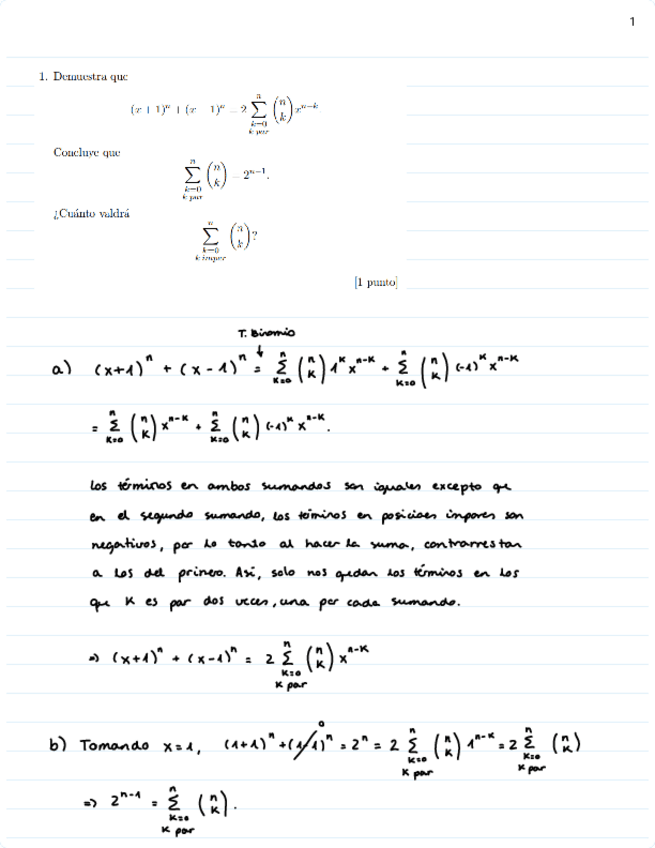 1
1. Demuestra que
(x + 1)^n + (x − 1)^n = 2 \sum_{\substack{k=0 \\ k par}}^{n} \binom{n}{k} x^{n-k}
Concluye que
\sum_{\substack{k=0 \\ k par}}^{n} \binom{n}{k} = 2^{n-1}.
¿Cuánto valdrá
\sum_{\substack{k=0 \\ k impar}}^{n} \binom{n}{k}?
[1 punto]
T. Binomio
↓
a) (x+1)^n + (x-1)^n = \sum_{k=0}^{n} \binom{n}{k} 1^k x^{n-k} + \sum_{k=0}^{n} \binom{n}{k} (-1)^k x^{n-k}
= \sum_{k=0}^{n} \binom{n}{k} x^{n-k} + \sum_{k=0}^{n} \binom{n}{k} (-1)^k x^{n-k}.
Los términos en ambos sumandos son iguales excepto que
en el segundo sumando, los términos en posiciones impares son
negativos, por lo tanto al hacer la suma, contrarrestan
a los del primero. Así, solo nos quedan los términos en los
que K es par dos veces, una por cada sumando.
⇒ (x+1)^n + (x-1)^n = 2 \sum_{\substack{k=0 \\ k par}}^{n} \binom{n}{k} x^{n-k}
b) Tomando x=1, (1+1)^n + (1-1)^n = 2^n = 2 \sum_{\substack{k=0 \\ k par}}^{n} \binom{n}{k} 1^{n-k} = 2 \sum_{\substack{k=0 \\ k par}}^{n} \binom{n}{k}
⇒ 2^{n-1} = \sum_{\substack{k=0 \\ k par}}^{n} \binom{n}{k}.